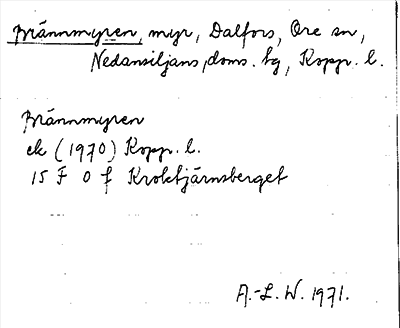 Brännmyren, myr, Dalfors, Ore sn,
Nedansiljans doms. tg, Kopp. l.
Brännmyren
ek (1970) Kopp. l.
15 F 0 f Kroktjärnsberget
A.-L. W. 1971.